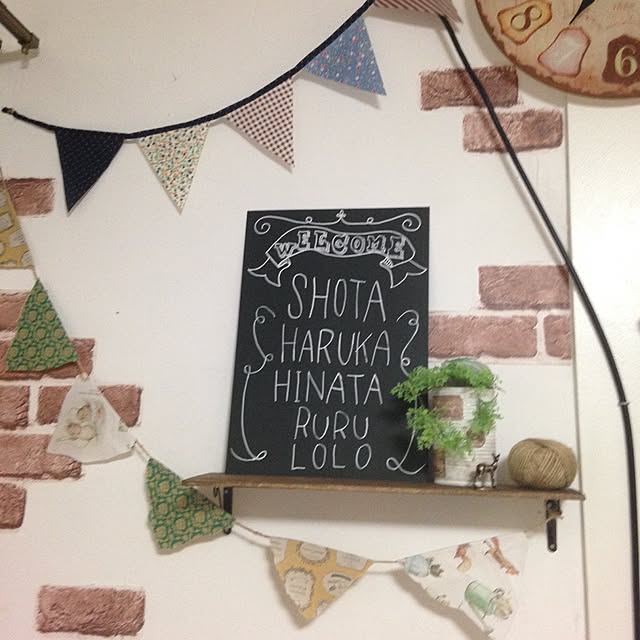 WELCOME
SHOTA
HARUKA
HINATA
RURU
LOLO
8
7
6